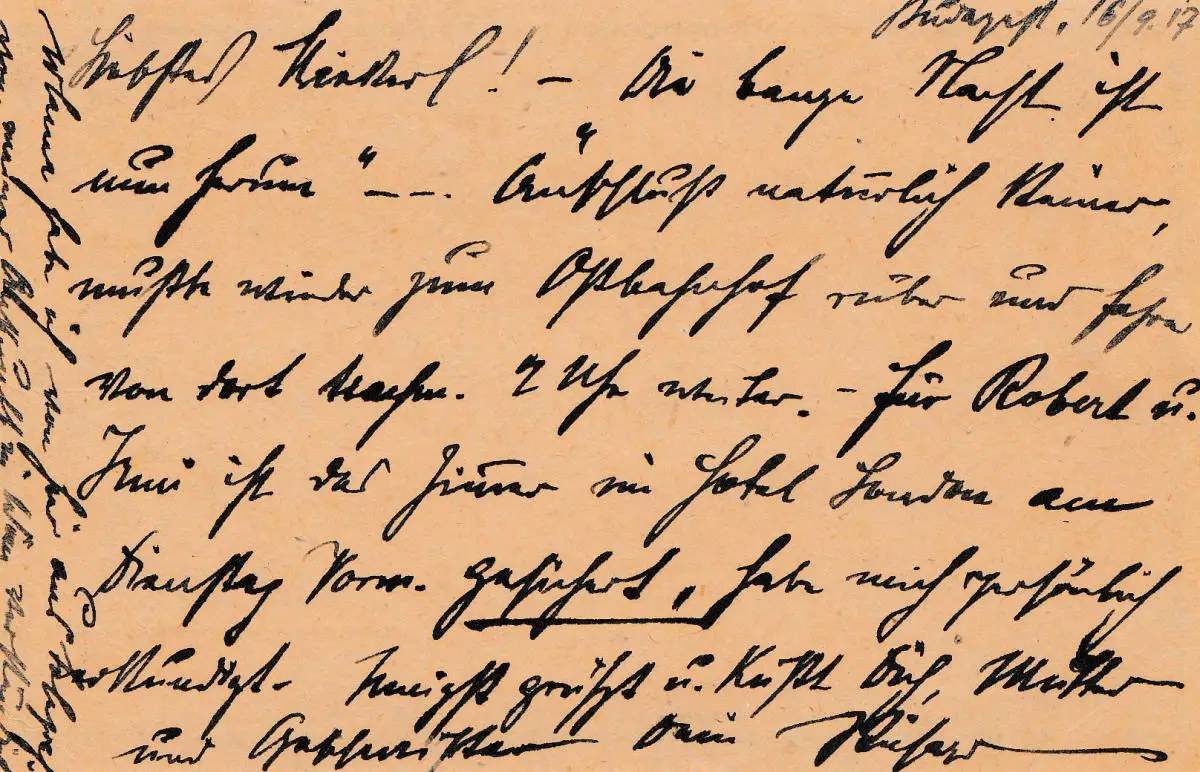 Budapest, 16/9.17
Liebstes Kinderl! – Die bange Nacht ist
nun herum " – –. Anschluß natürlich keiner,
mußte wieder zum Ostbahnhof rüber und fahre
von dort nachm. 2 Uhr weiter. – Für Robert u.
ist das Zimmer im Hotel London am
Dienstag Vorm. gesichert, habe mich persönlich
erkundigt. Innigst grüßt u. küßt Dich, Mutter
und Geschwister Dein Richard
habe ich von hier aus
meiner in Wien